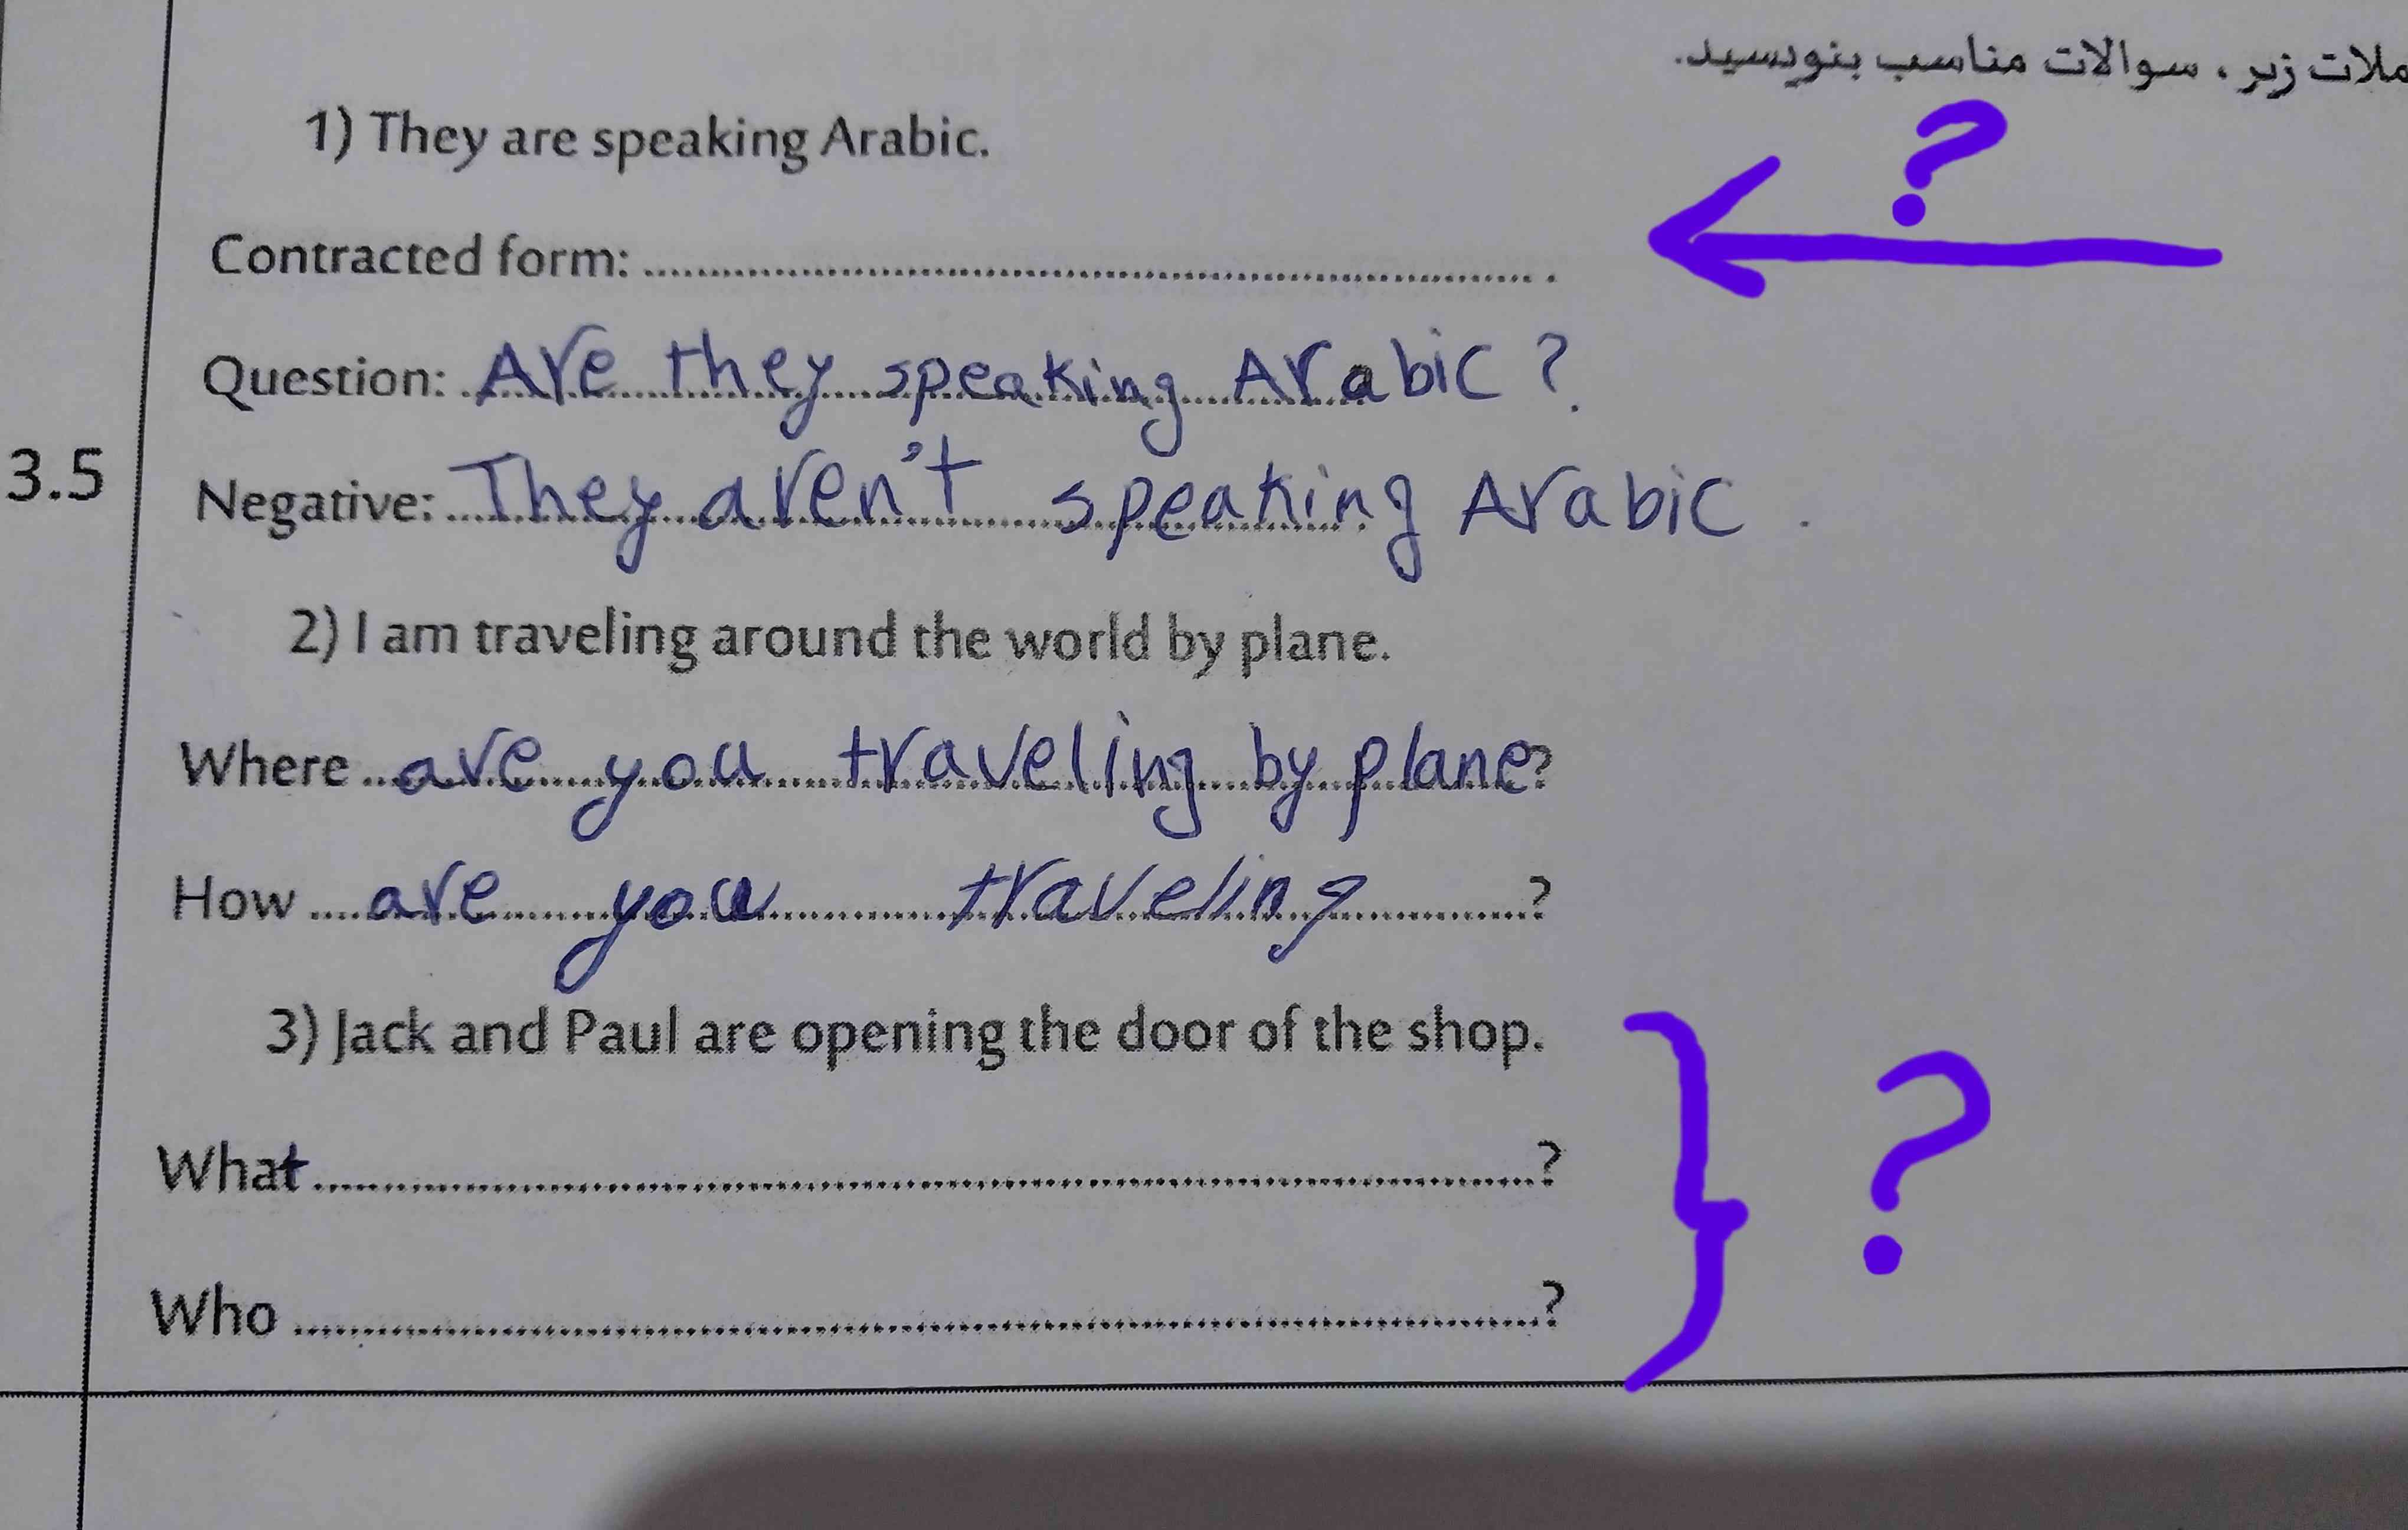 ملات زیر ، سوالات مناسب بنویسید.
?
1) They are speaking Arabic.
Contracted form: ........................................ .
Question: Are they speaking Arabic ?
3.5
Negative: They aren't speaking Arabic .
2) I am traveling around the world by plane.
Where are you traveling by plane?
How are you traveling ?
3) Jack and Paul are opening the door of the shop.
?
What ........................................?
Who ........................................?